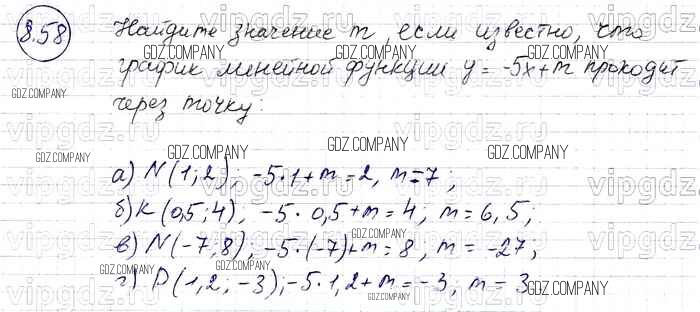 8.58 Найдите значение m, если известно, что
график линейной функции y = -5x+m проходит
через точку:
а) N(1;2); -5·1+m=2, m=7;
б) K(0,5;4), -5·0,5+m=4; m=6,5;
в) N(-7;8); -5·(-7)+m=8, m=-27;
г) P(1,2;-3); -5·1,2+m=-3, m=3
GDZ.COMPANY
GDZ.COMPANY
GDZ.COMPANY
GDZ.COMPANY
GDZ.COMPANY
GDZ.COMPANY
GDZ.COMPANY
GDZ.COMPANY
GDZ.COMPANY
GDZ.COMPANY
GDZ.COMPANY
GDZ.COMPANY
GDZ.COMPANY
GDZ.COMPANY
vipgdz.ru